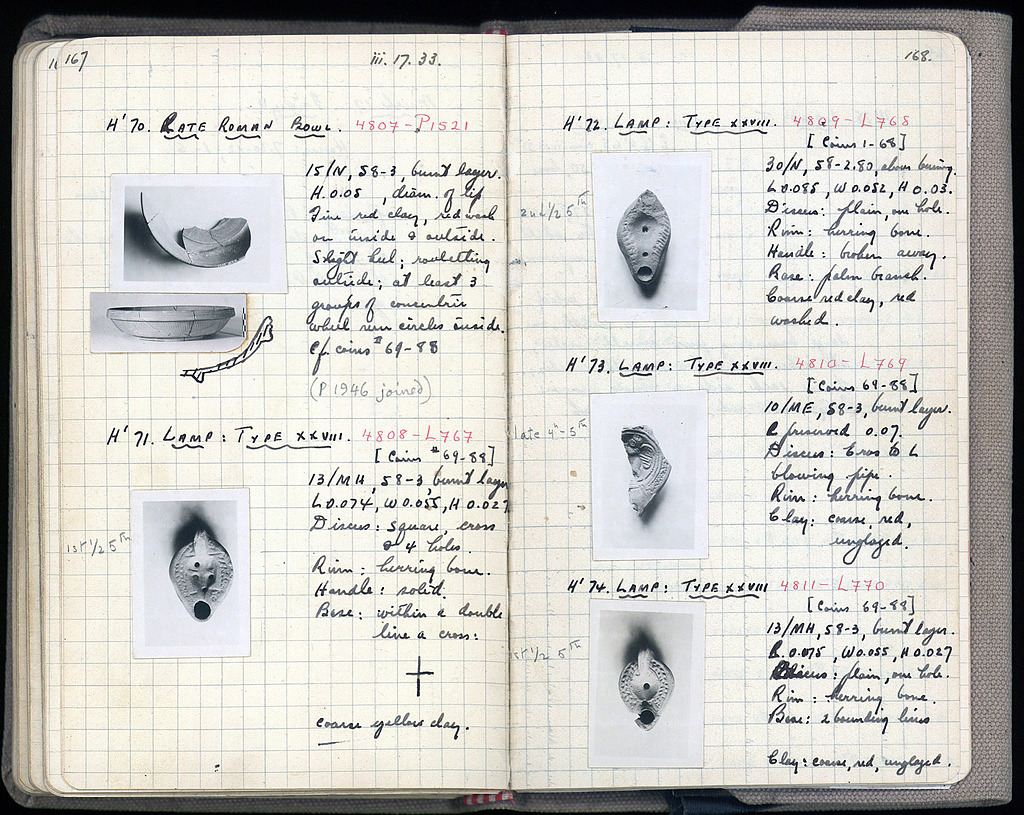 167
iii. 17. 33.
H' 70. LATE ROMAN BOWL. 4807-P1521
15/N, 58-3, burnt layer.
H. 0.05 , diam. of lip
Fine red clay, red wash
on inside & outside.
Slight heel; rouletting
outside; at least 3
groups of concentric
wheel run circles inside.
Cf. coins # 69-88
(P 1946 joined)
H' 71. LAMP: TYPE XXVIII. 4808-L767
[Coins # 69-88]
13/MH, 58-3, burnt layer
L 0.074, W 0.055, H 0.027
Discus: square, cross
& 4 holes.
1st 1/2 5th
Rim: herring bone.
Handle: solid.
Base: within a double
line a cross:
coarse yellow clay.
168.
H' 72. LAMP: TYPE XXVIII. 4809-L768
[Coins 1-68]
30/N, 58-2.80, above burning.
L 0.085, W 0.052, H 0.03.
2nd 1/2 5th
Discus: plain, one hole.
Rim: herring bone.
Handle: broken away.
Base: palm branch.
Coarse red clay, red
washed.
H' 73. LAMP: TYPE XXVIII. 4810-L769
[Coins 69-88]
10/ME, 58-3, burnt layer.
late 4th-5th
L preserved 0.07.
Discus: Eros to L
blowing pipe.
Rim: herring bone.
Clay: coarse, red,
unglazed.
H' 74. LAMP: TYPE XXVIII 4811-L770
[Coins 69-88]
13/MH, 58-3, burnt layer.
1st 1/2 5th
L 0.075, W 0.055, H 0.027
Discus: plain, one hole.
Rim: herring bone.
Base: 2 bounding lines
Clay: coarse, red, unglazed.